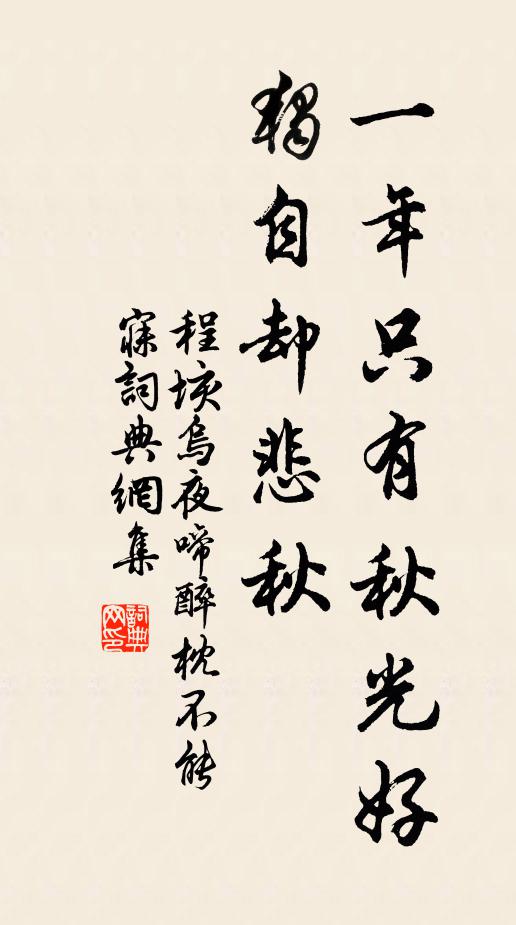 一年只有秋光好
獨自却悲秋
程垓烏夜啼醉枕不能
寐詞典網集
詞典网印